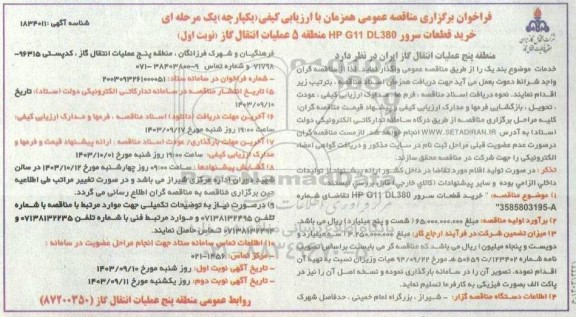 شناسه آگهی: ۱۸۳۴۰۱۱
فراخوان برگزاری مناقصه عمومی همزمان با ارزیابی کیفی (یکپارچه) یک مرحله ای
خرید قطعات سرور HP G11 DL380 منطقه ۵ عملیات انتقال گاز (نوبت اول)
منطقه پنج عملیات انتقال گاز ایران در نظر دارد
خدمات موضوع بند یک را از طریق مناقصه عمومی واگذار
واجد شرائط دعوت بعمل می آید جهت دریافت
اقدام نمایند. نحوه دریافت اسناد مناقصه، فرم
تحویل، بازگشایی فرمها و مدارک ارزیابی کیفی
کلیه مراحل برگزاری مناقصه از طریق درگاه سامانه تدارکات الکترونیکی دولت
(ستاد) به آدرس WWW.SETADIRAN.IR انجام
درصورت عدم عضویت قبلی مراحل ثبت نام در سایت مذکور و دریافت گواهی امضاء
الکترونیکی را جهت شرکت در مناقصه محقق سازند.
تذکر: در صورت تولید اقلام مورد تقاضا در داخل کشور
داخلی الزامی بوده و سایر پیشنهادات (کالای خارجی)
۱) موضوع مناقصه: "خرید قطعات سرور HP G11 DL380 تقاضای شماره
3585803195-A"
۲) برآورد اولیه مناقصه: ۶۵,۰۰۰,۰۰۰,۰۰۰ (شصت و پنج میلیارد) ریال می باشد.
۳) میزان تضمین شرکت در فرآیند ارجاع کار:
دویست و پنجاه میلیون) ریال می باشد که مناقصه گر می بایست براساس تصویب
نامه شماره ۱۲۳۴۰۲/ت ۵۰۶۵۹ ه مورخ ۹۴/۰۹/۲۲ هیات وزیران نسبت به تهیه آن
اقدام نموده، تصویر آن را در سامانه بارگذاری نموده و نسخه اصل آن را نیز در
پاکت الف بصورت فیزیکی به کارفرما تسلیم نماید.
۴) اطلاعات دستگاه مناقصه گزار: - شیراز، بزرگراه امام خمینی، حدفاصل شهرک
فرهنگیان و شهرک فرزانگان، منطقه پنج عملیات انتقال گاز، کدپستی ۹۶۳۱۵-
۷۱۷۹۸ و شماره تماس ۹-۳۸۴۰۳۸۰۰-۰۷۱
- شماره فراخوان در سامانه ستاد: ۲۰۰۳۰۹۳۲۶۱۰۰۰۰۵۱
۵) تاریخ انتشار مناقصه در سامانه تدارکاتی الکترونیکی دولت (ستاد): تاریخ
۱۴۰۳/۰۹/۱۰
۶) آخرین مهلت دریافت (دانلود) اسناد مناقصه، فرمها و مدارک ارزیابی کیفی:
ساعت ۱۹:۰۰ روز شنبه مورخ ۱۴۰۳/۰۹/۱۷
۷) آخرین مهلت بارگذاری/عودت اسناد مناقصه: ارائه پیشنهاد قیمت و فرمها و
مدارک ارزیابی کیفی: ساعت ۱۹:۰۰ روز شنبه مورخ ۱۴۰۳/۱۰/۰۱
۸) گشایش پاکات مناقصه: ساعت ۰۹:۰۰ روز چهارشنبه مورخ ۱۴۰۳/۱۰/۱۲ در سالن
اداره مرکزی شیراز می باشد و در صورت تغییر مراتب طی اطلاعیه
حین برگزاری مناقصه به مناقصه گران اطلاع رسانی می گردد.
۹) درصورت نیاز به توضیحات تکمیلی جهت موارد مرتبط با مناقصه با شماره
تلفن ۰۷۱۳۸۱۳۲۴۹۵ و موارد مرتبط فنی با شماره تلفن ۰۷۱۳۸۱۳۲۲۳۵ و
تماس حاصل نمایند.
۱۰) اطلاعات تماس سامانه ستاد جهت انجام مراحل عضویت در سامانه:
مرکز تماس: ۱۴۵۶-۰۲۱
- تاریخ آگهی نوبت اول: روز شنبه مورخ ۱۴۰۳/۰۹/۱۰
- تاریخ آگهی نوبت دوم: روز یکشنبه مورخ ۱۴۰۳/۰۹/۱۱
روابط عمومی منطقه پنج عملیات انتقال گاز (۸۷۲۰۰۳۵۰)